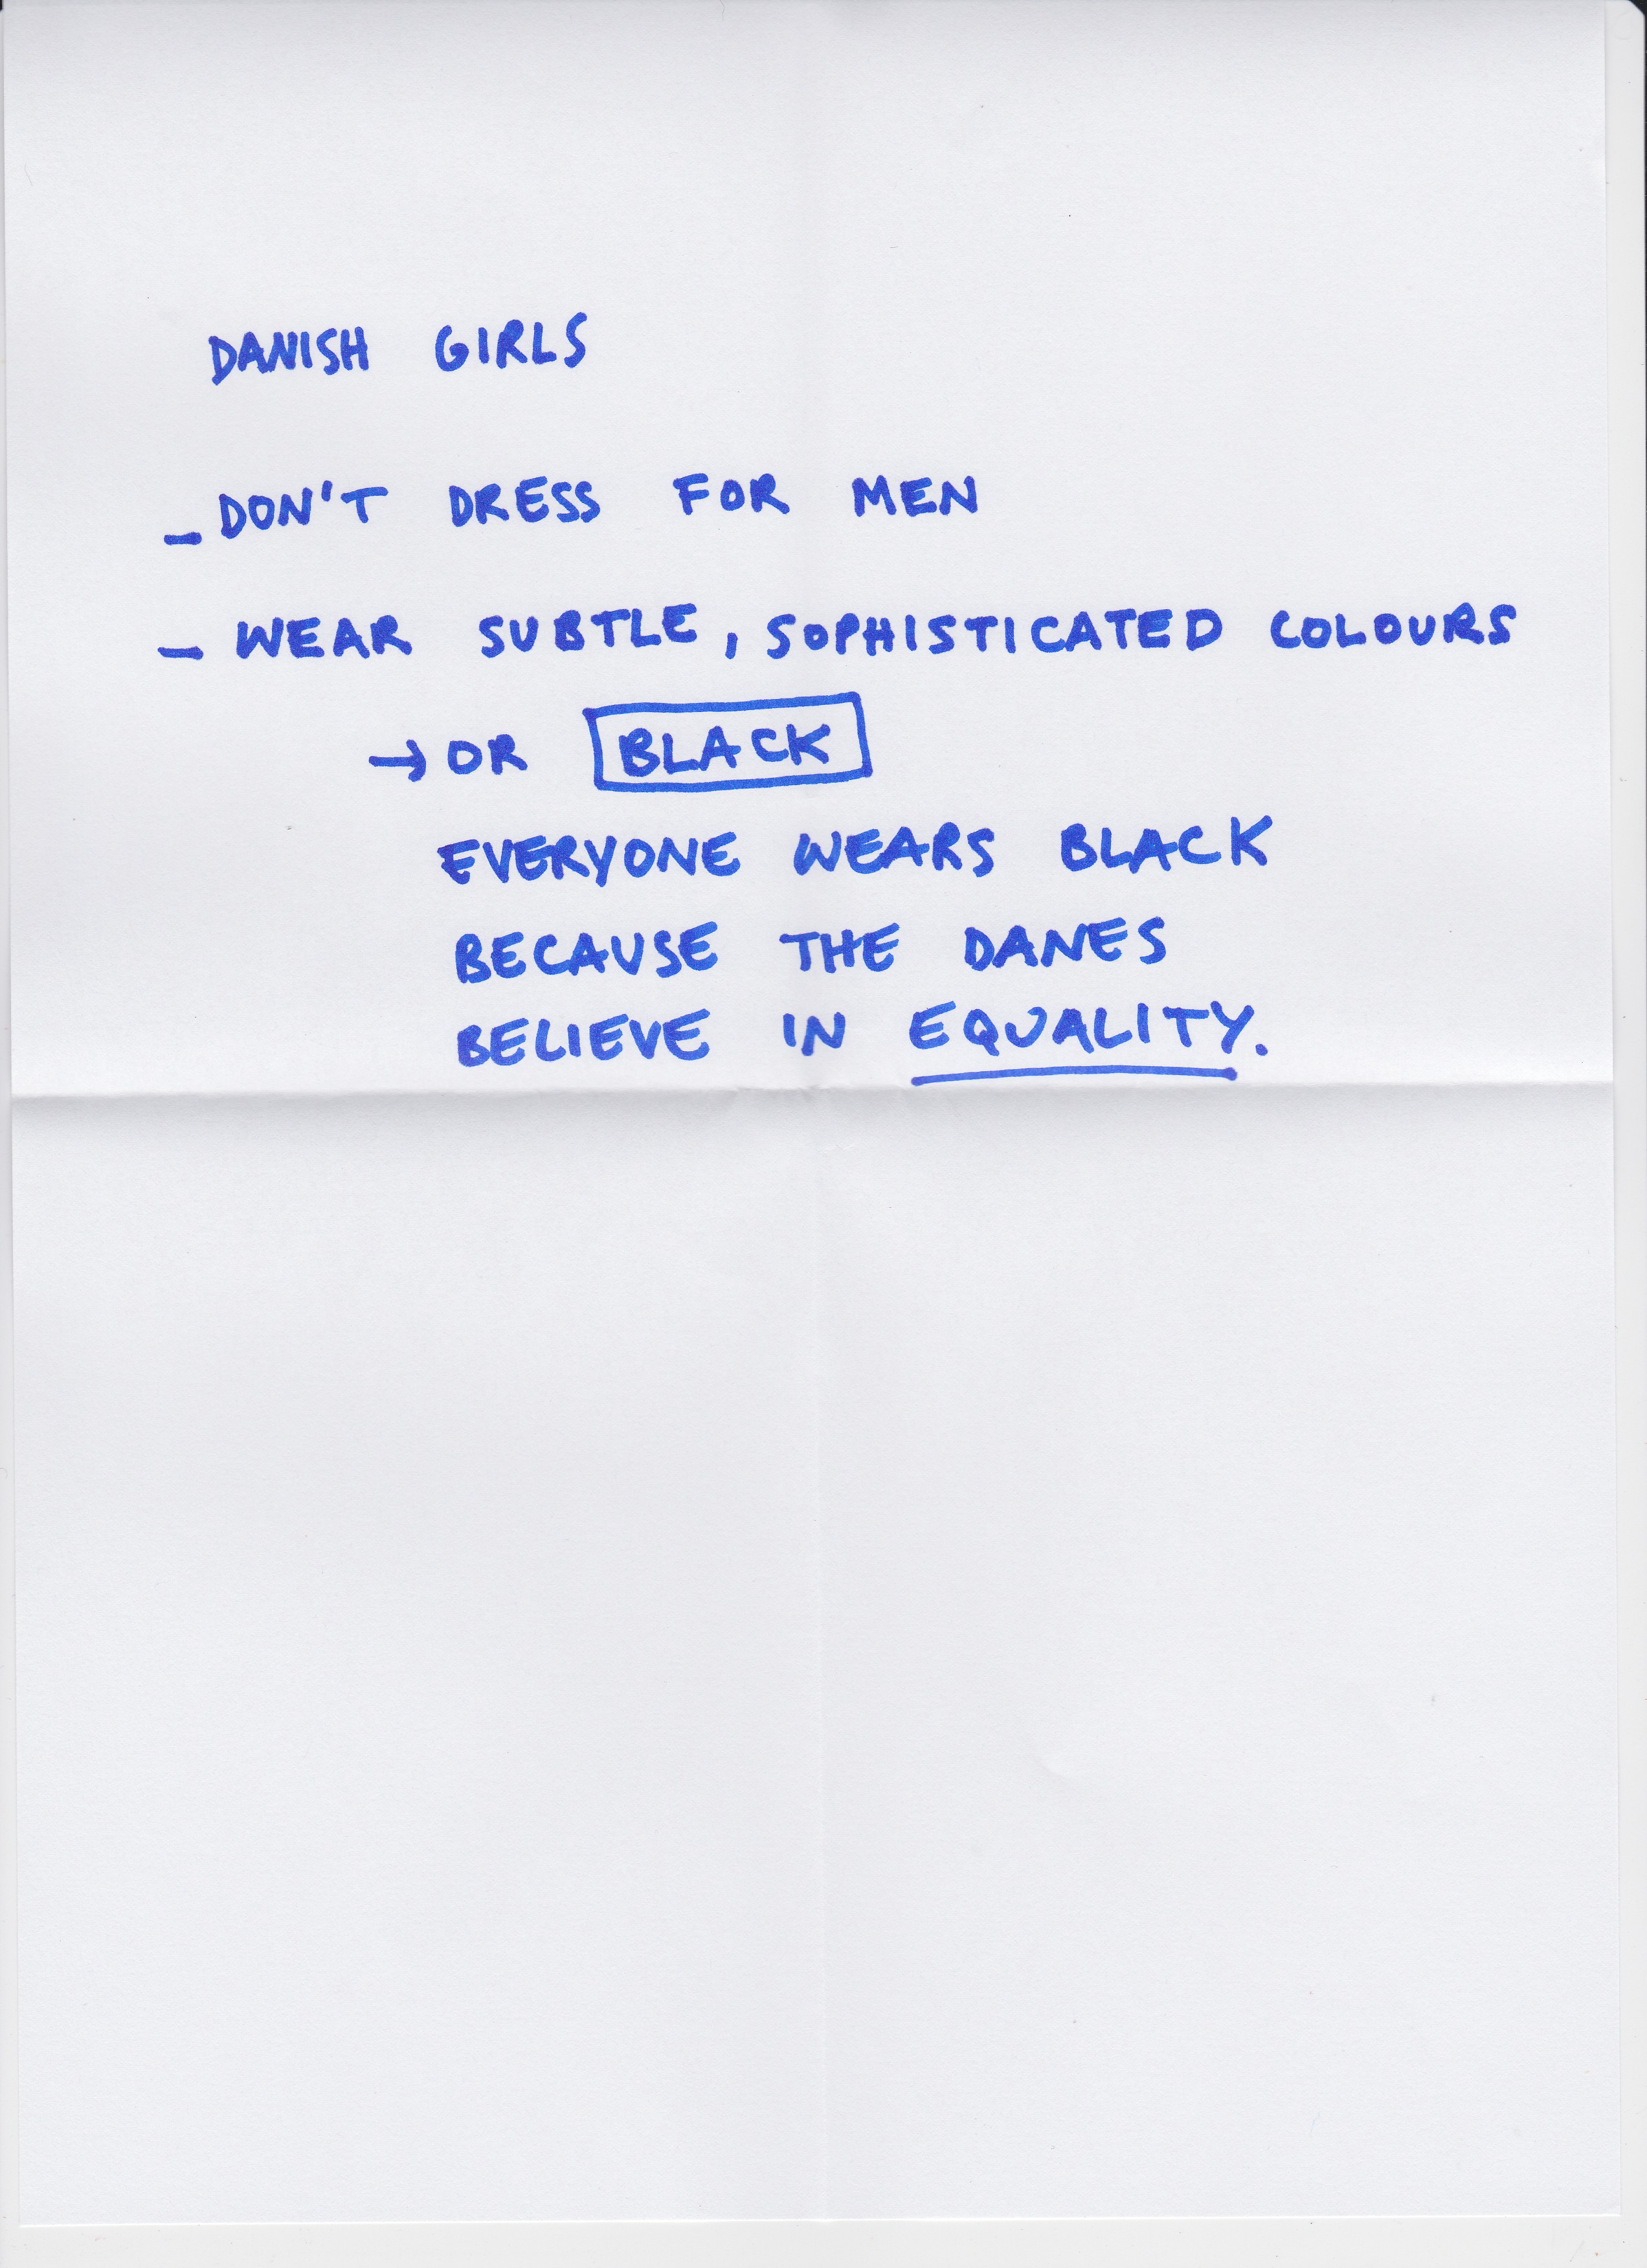 DANISH GIRLS
- DON'T DRESS FOR MEN
- WEAR SUBTLE, SOPHISTICATED COLOURS
→ OR BLACK
EVERYONE WEARS BLACK
BECAUSE THE DANES
BELIEVE IN EQUALITY.